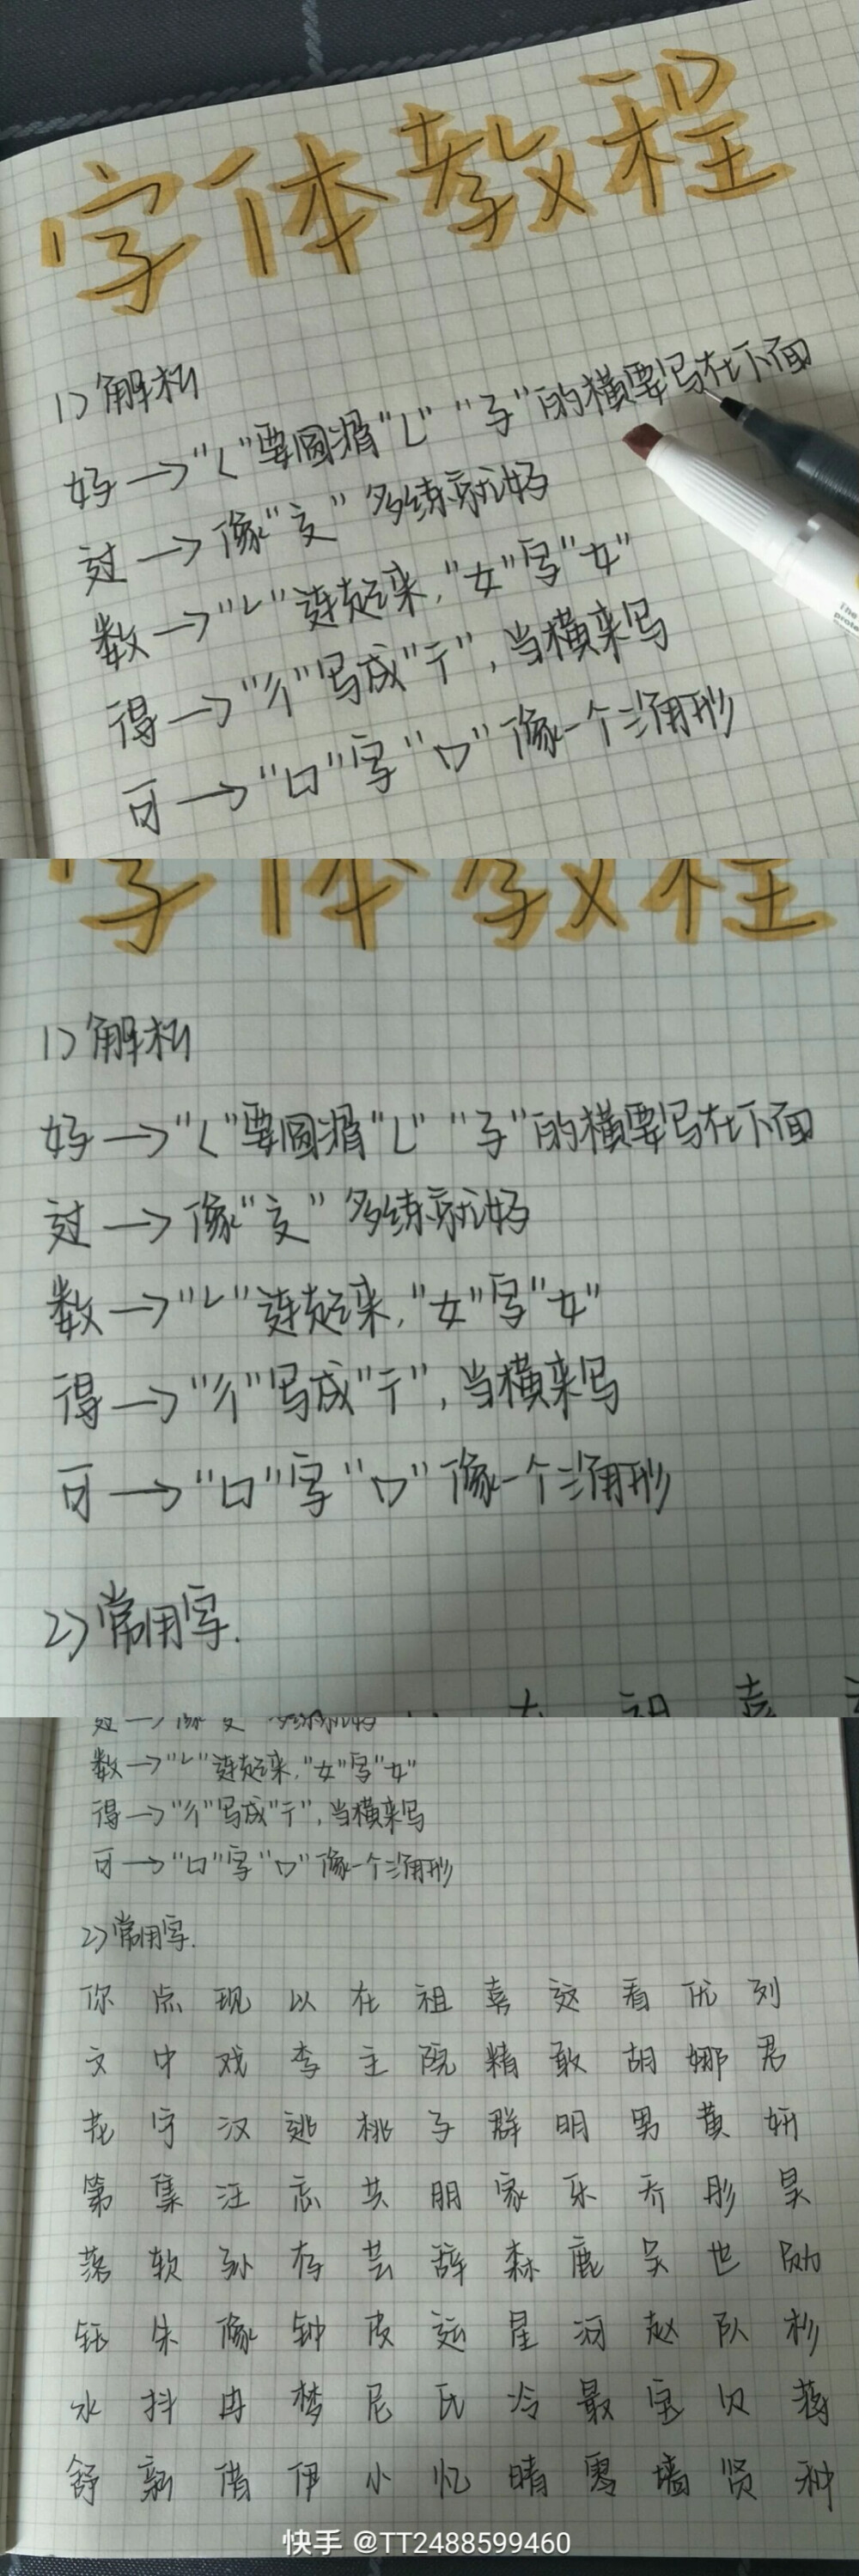 字体教程
1>解析
好→"く"要圆滑"L" "子"的横要写在下面
过→像"文" 多练就好
数→"㇀"连起来,"女"写"女"
得→"彳"写成"亍",当横来写
可→"口"字"▷"像一个三角形
The
字体教程
1>解析
好→"く"要圆滑"L" "子"的横要写在下面
过→像"文" 多练就好
数→"㇀"连起来,"女"写"女"
得→"彳"写成"亍",当横来写
可→"口"字"▷"像一个三角形
2>常用字.
过→像"文" 多练就好
数→"㇀"连起来,"女"写"女"
得→"彳"写成"亍",当横来写
可→"口"字"▷"像一个三角形
2>常用字.
你 点 现 以 在 祖 喜 这 看 优 列
文 中 戏 李 主 院 精 敢 胡 娜 君
花 字 汉 逃 桃 子 群 明 男 黄 妍
第 集 汪 志 共 朋 家 乐 乔 彤 昊
落 软 孙 存 芸 辞 森 鹿 吴 世 勋
钰 朱 像 钟 皮 运 星 河 赵 队 杉
水 抖 冉 梦 尼 氏 冷 最 宝 贝 蒋
舒 新 借 伊 小 忆 晴 雪 墙 贤 种
快手 @TT2488599460